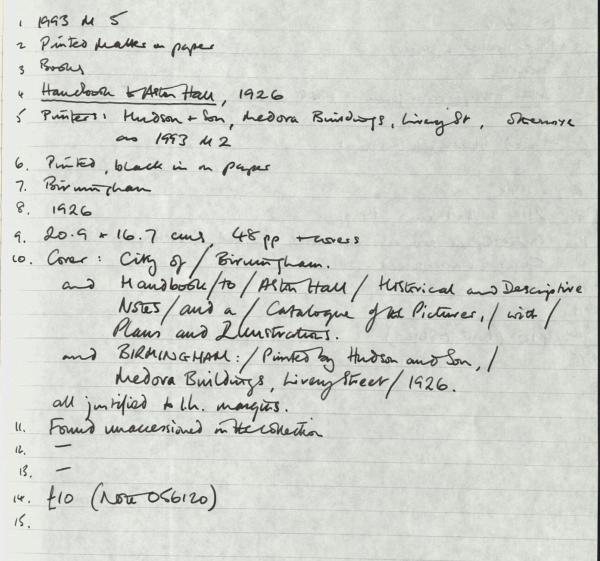 1 1993 M 5
2 Printed Matter on paper
3 Books
4 Handbook to Aston Hall, 1926
5 Printers: Hudson + Son, Medora Buildings, Livery St, otherwise
as 1993 M 2
6. Printed, black in on paper
7. Birmingham
8. 1926
9. 20.9 x 16.7 cms, 48 pp + covers
10. Cover: City of / Birmingham.
and Handbook / to / Aston Hall / Historical and Descriptive
Notes / and a / Catalogue of the Pictures, / with /
Plans and Illustrations.
and BIRMINGHAM: / Printed by Hudson and Son, /
Medora Buildings, Livery Street / 1926.
all justified to l.h. margins.
11. Found unaccessioned in the collection
12. —
13. —
14. £10 (Note 056120)
15.